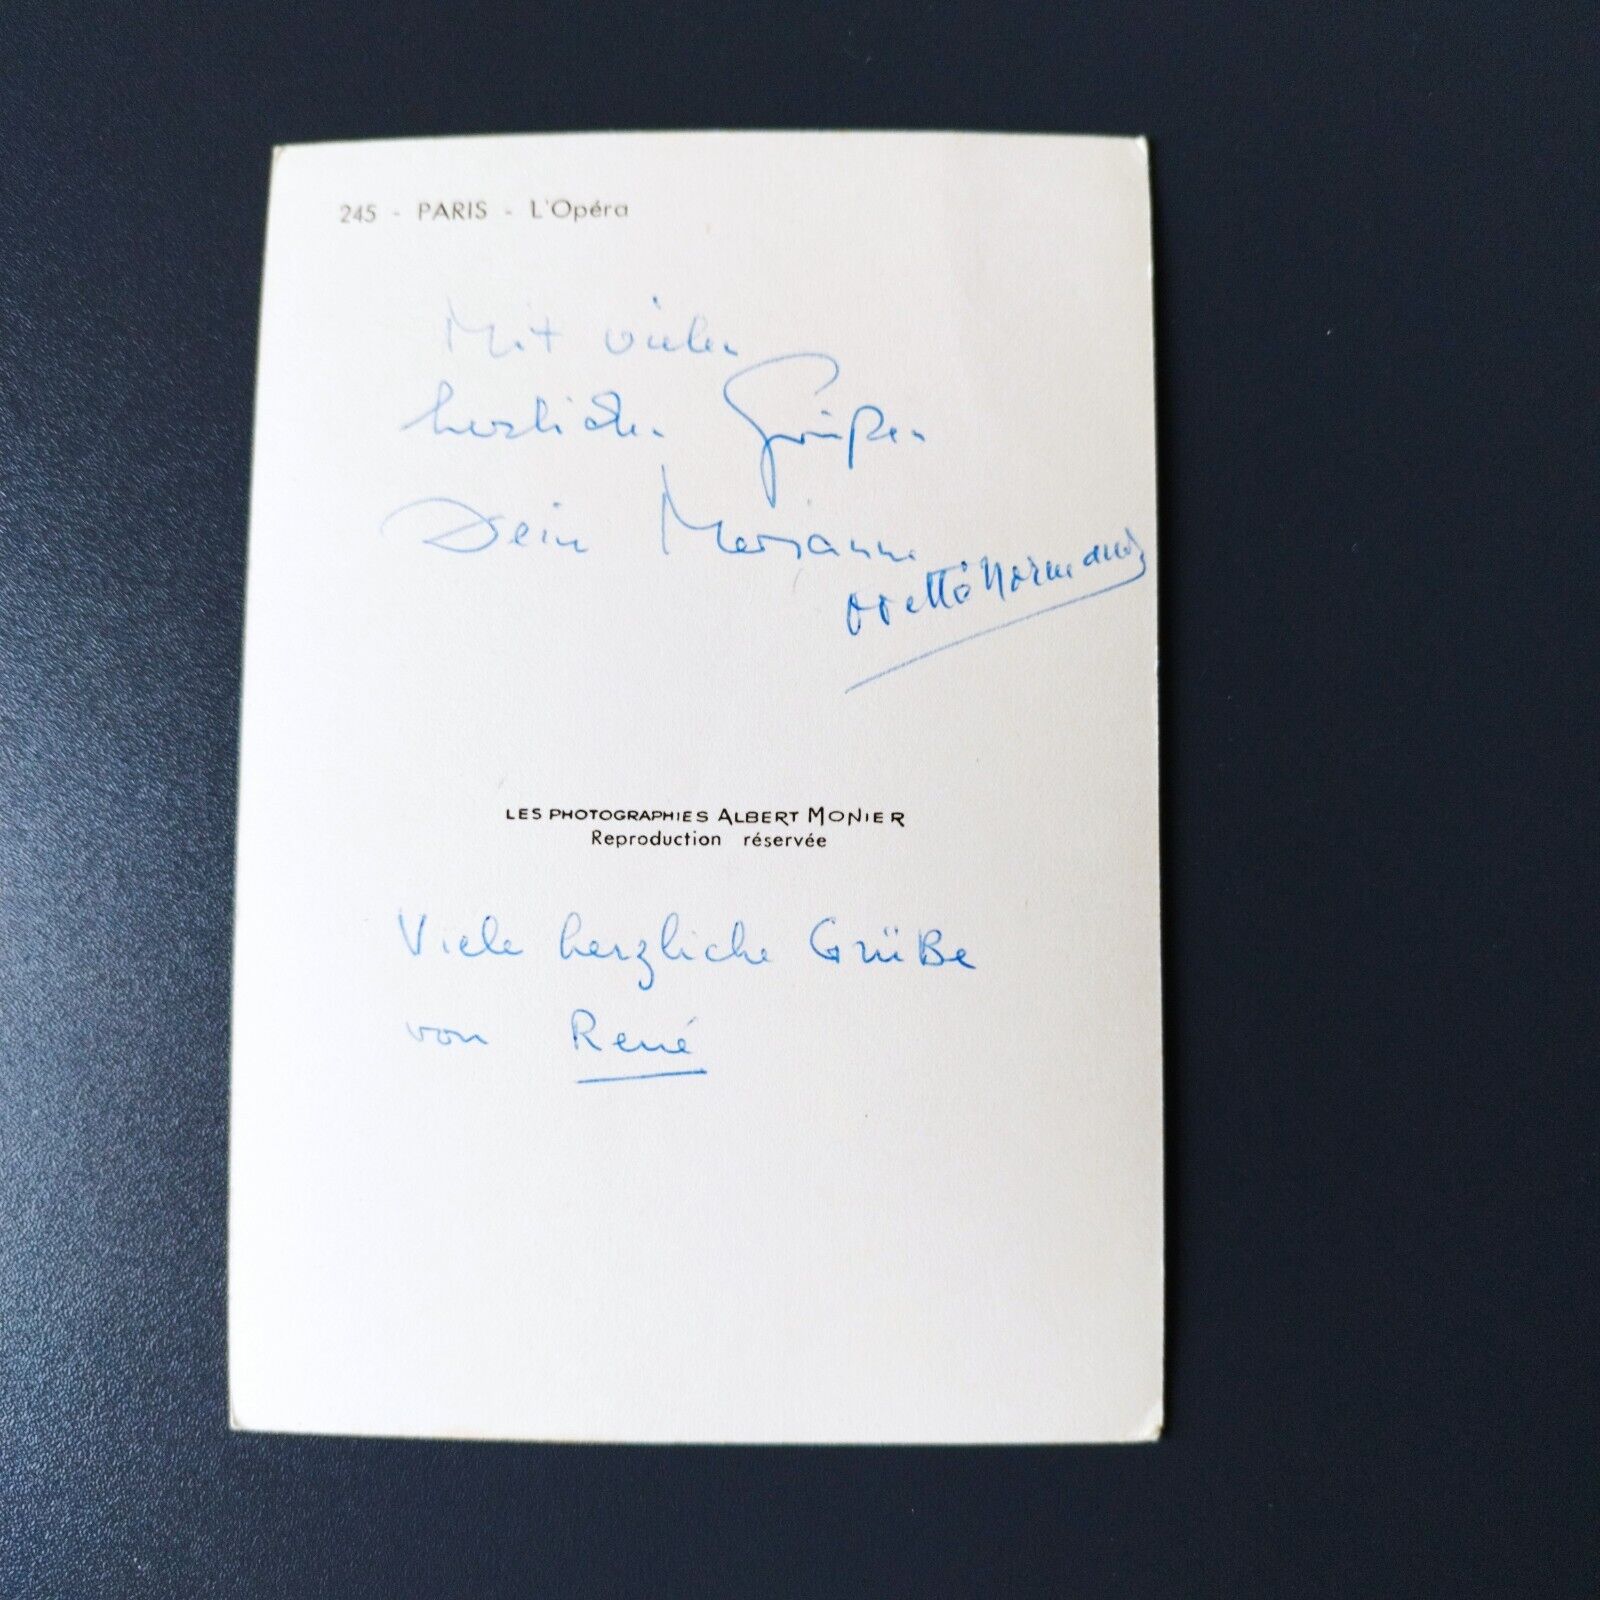 245 - PARIS - L'Opéra
Mit vielen
herzlichen Grüßen
Dein Marianne
LES PHOTOGRAPHIES ALBERT MONIER
Reproduction réservée
Viele herzliche Grüße
von René